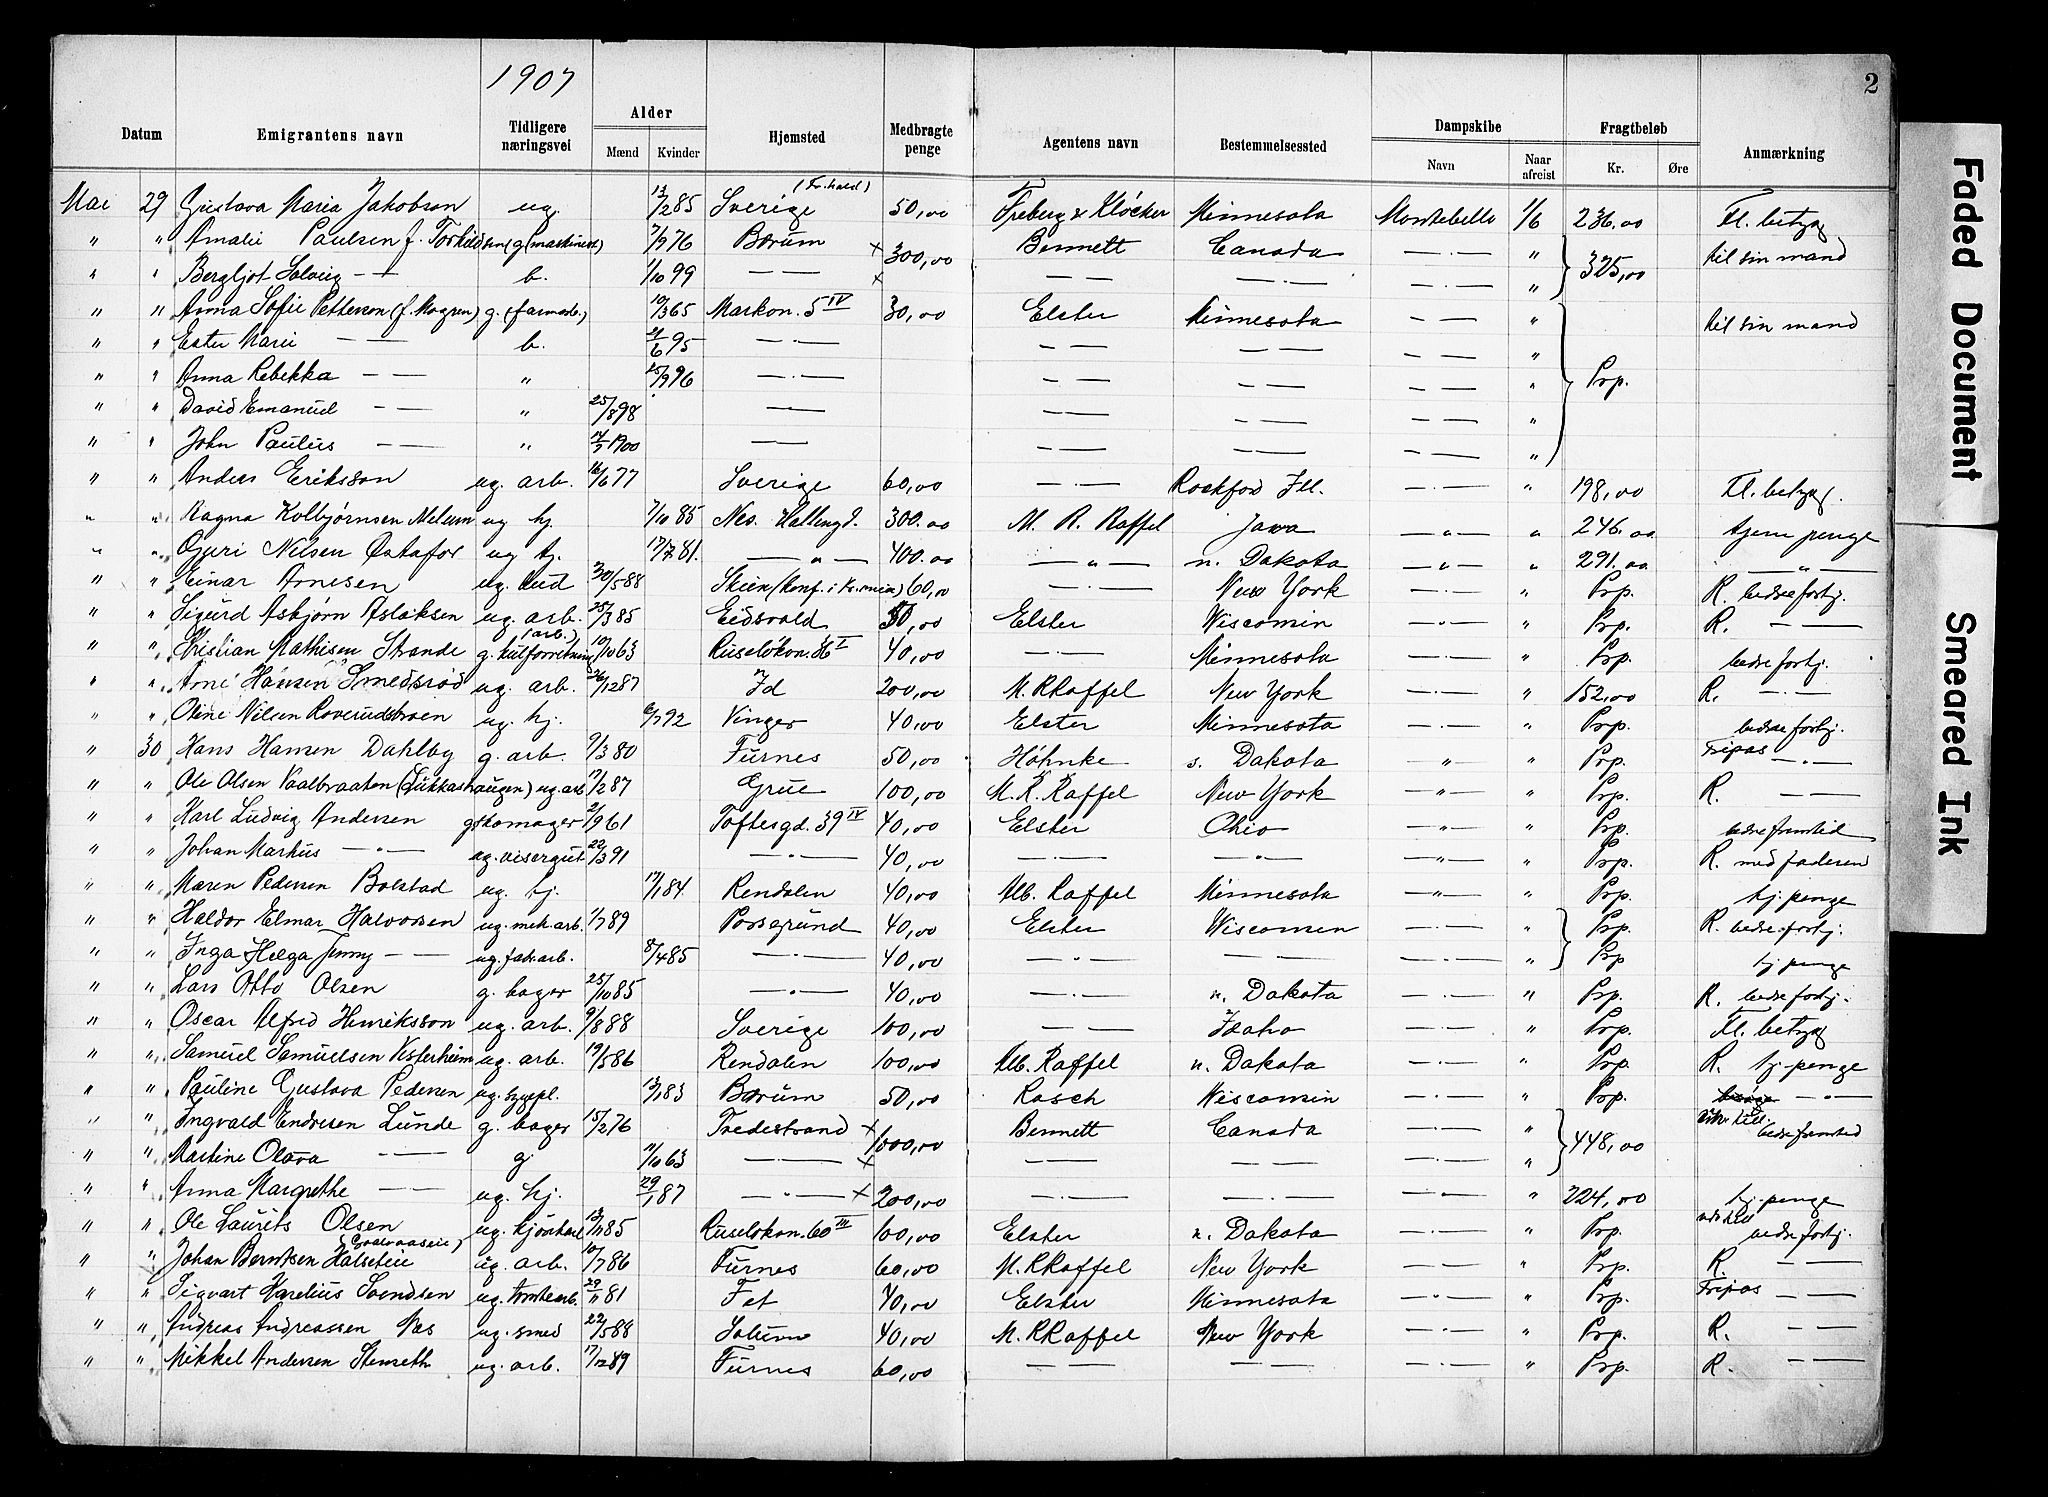 1907
2
Datum Emigrantens navn Tidligere næringsvei Alder Mænd Kvinder Hjemsted Medbragte penge Agentens navn Bestemmelsessted Dampskibe Navn Naar afreist Fragtbeløb Kr. Øre Anmærkning
Mai 29 Gustava Maria Jakobson ug. 13/2 85 Sverige (Fr.hald) 50,00 Freberg & Kløcker Minnesota Montebello 1/6 236.00 Fl. betyg
" " Amalie Paulsen f. Torkildsen g (maskinist) 7/9 76 Bærum × 300,00 Bennett Canada — . — " 325,00 til sin mand
" " Bergljot Solveig — — b. 1/10 99 — — × — — — . — — . — "
" " Anna Sofie Petterson (f. Mogren) g. (farmarb.) 10/3 65 Markvn. 5 IV 30,00 Elster Minnesota — . — " til sin mand
" " Ester Marie — — b. 21/6 95 — . — — — — — — — "
" " Anna Rebekka — — " 25/9 96 — . — — — — — — — " Prp.
" " David Emanuel — — " 25/8 98 — — — — — — — — "
" " John Paulus — — " 14/3 1900 — — — — — — — — "
" " Anders Eriksson ug. arb. 16/6 77 Sverige 60,00 — . — Rockford Ill. — . — " 198,00 Fl. betyg.
" " Ragna Kolbjørnsen Melum ug hj. 7/10 85 Nes. Hallingd. 300.00 M. R. Raffel Jowa — " — " 246.00 tjene penge
" " Guri Nilsen Østafor ug tj. 17/7 81. — " — 400.00 — " — n. Dakota — " — " 291.00 — " —
" " Einar Arnesen ug. bud 30/5 88 Skien (konf. i Kr.ania) 60,00 — . — New York — . — " Prp. R. bedre fortj.
" " Sigurd Asbjørn Aslaksen ug. arb. 25/3 85 Eidsvold 50,00 Elster Wisconsin — . — " Prp. R. — —
" " Kristian Mathisen Strande g. kulforretning (arb.) 10/10 63 Ruseløkvn. 36 I 40,00 — . — Minnesota — . — " Prp. bedre fortj.
" " Arne Hansen Smedsrød ug. arb. 26/12 87 Id 200,00 M. R Raffel New York — . — " 152,00 R. — . —
" " Oline Nilsen Roverudsbroen ug. hj. 6/7 92 Vinger 40,00 Elster Minnesota — . — " Prp. bedre fortj.
" 30 Hans Hansen Dahlby g. arb. 9/3 80 Furnes 50,00 Høhnke s. Dakota — " — " Prp. Fripas — . —
" " Ole Olsen Vaalbraaten (Lukkashaugen) ug. arb 17/2 87 Grue 100,00 M. R. Raffel New York — " — " Prp. R. — —
" " Karl Ludvig Andersen g skomager 2/9 61 Toftesgd. 39 IV 40,00 Elster Ohio — " — " Prp. bedre fremtid
" " Johan Markus — " — ug. visergut 22/3 91 — " — 40,00 — — — " — — " — " Prp. R. med faderen
" " Maren Pedersen Bolstad ug. hj. 17/1 84. Rendalen 40,00 Alb. Raffel Minnesota — " — " Prp. tj. penge
" " Haldor Elmar Halvorsen ug. mek. arb. 1/7 89 Porsgrund 40,00 Elster Wisconsin — . — " Prp. R. bedre fortj.
" " Inga Helga Jenny — — ug. fab. arb. 8/4 85 — . — 40,00 — " — — . — — . — " Prp tj. penge
" " Lars Otto Olsen g. bager 25/10 85 — " — 40,00 — . — n. Dakota — . — " Prp. R. bedre fortj.
" " Oscar Alfred Henriksson ug. arb. 9/8 88 Sverige 100,00 — — Idaho — . — " Prp. Fl. betyg
" " Samuel Samuelsen Vesterheim ug. arb. 19/5 86 Rendalen 100,00 Alb. Raffel n. Dakota — . — " Prp. R. tj. penge
" " Pauline Gustava Pedersen ug. sypl. 13/1 83 Bærum 50,00 Rasch Wisconsin — . — " Prp. — " —
" " Ingvald Endresen Lunde g. bager 15/2 76 Tvedestrand × 1000,00 Bennett Canada — . — " 448,00 bedre fremtid
" " Martine Olava — — g 11/10 63 — . — × — — — — — . — "
" " Anna Margrethe — — ug. hj. 29/1 87 — " — × 200,00 — . — — . — — . — " 224,00 tj. penge
" " Ole Laurits Olsen ug. 13/11 85 Ruseløkvn. 60 III 100,00 Elster n. Dakota — " — " Prp. bedre fortj.
" " Johan Berntsen Halselien ug. arb. 10/7 86 Furnes 60,00 M. R Raffel New York — . — " Prp. R. — —
" " Sigvart Harelius Svendsen ug. tomtearb. 29/11 81 Fet 40,00 Elster Minnesota — . — " Prp. Fripas — —
" " Andreas Andreassen Næs ug. smed 22/5 88 Solum 40,00 M. R Raffel New York — . — " Prp. R. — —
" " Mikkel Andersen Stenseth ug. arb. 17/12 89 Furnes 60,00 — — — — — . — " Prp. R. — —
Faded Document
Smeared Ink